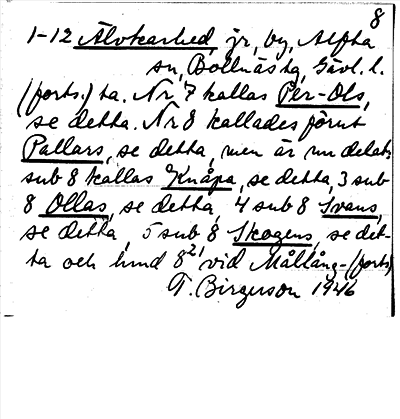 8
1-12 Älvkarhed, jr, by, Alfta
sn, Bollnäs tg, Gävl. l.
(forts.) ta. Nr 7 kallas Per-Ols,
se detta. Nr 8 kallades förut
Pallars, se detta, men är nu delat,
sub 8 kallas Knåpa, se detta, 3 sub
8 Ollas, se detta, 4 sub 8 Svens,
se detta, 5 sub 8 Skogens, se det-
ta och lund 8²¹ vid Mållång- (forts)
T. Birgerson 1946